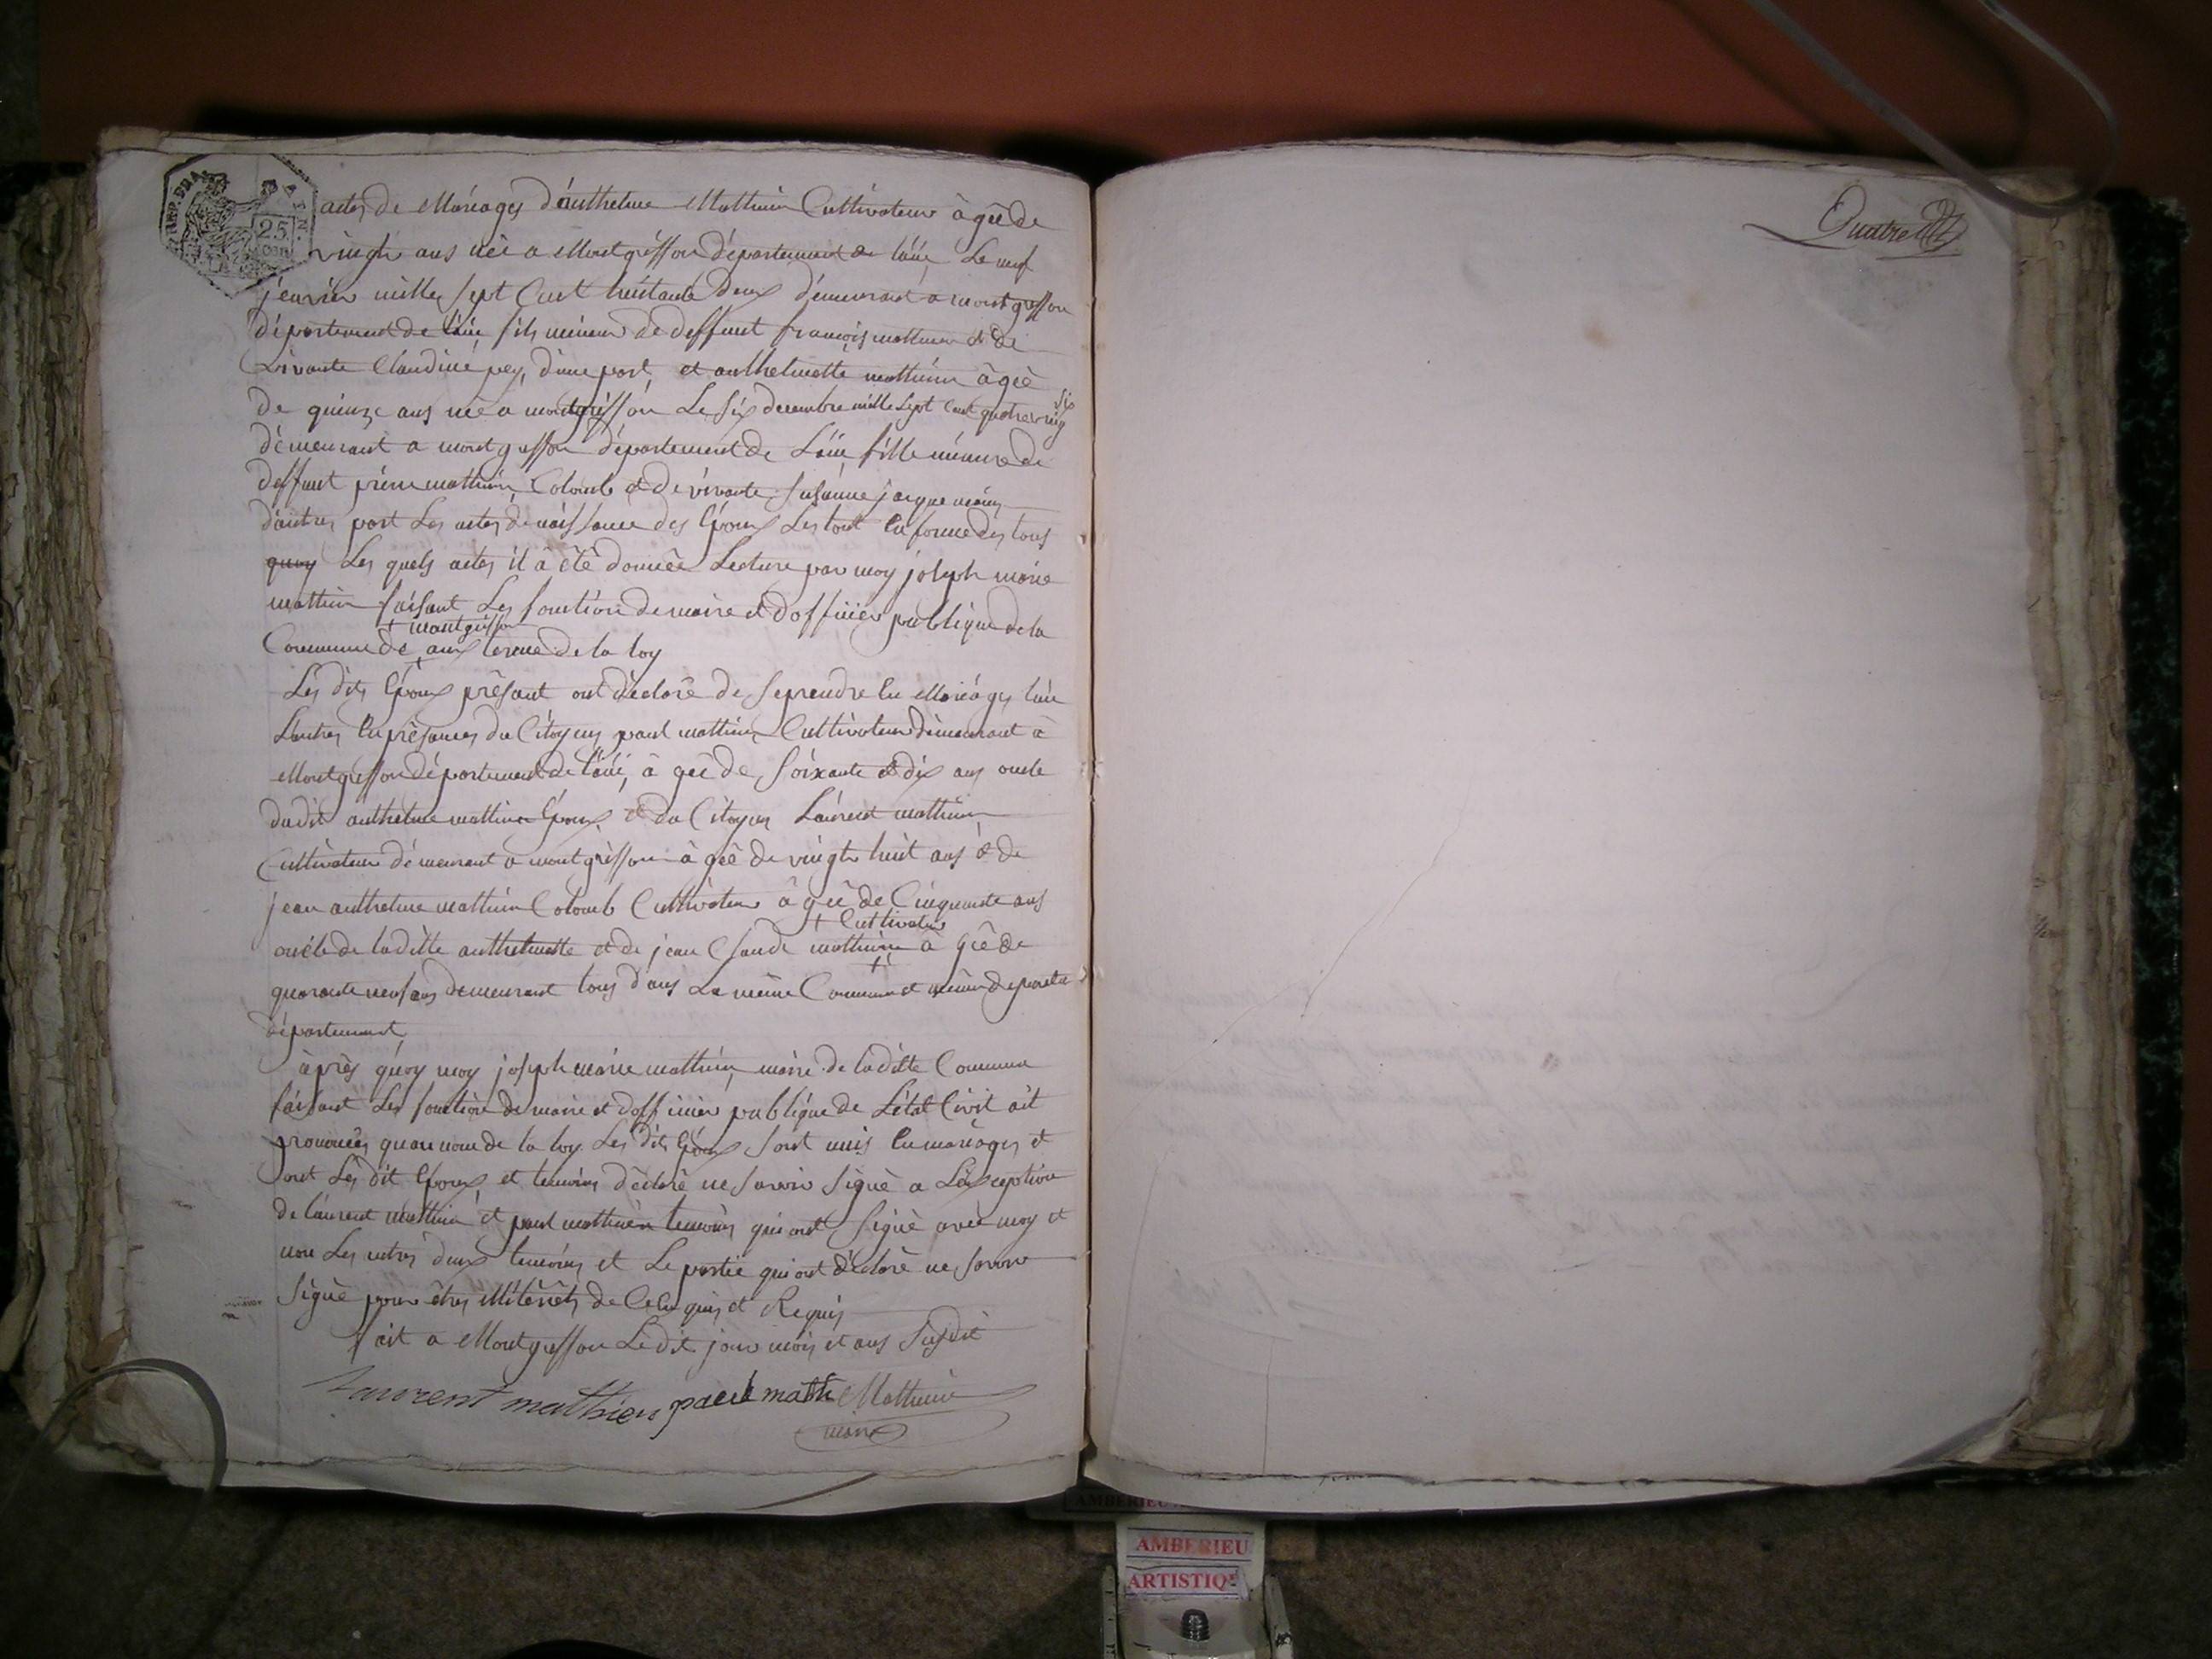 REP. FRA.
25
CEN.
actes de Mariages d'anthelme Mathieu Cultivateur âgée de
vingt ans née a Montgriffon département de l'ain Le neuf
jeanvier mille sept Cent huitante deux demeurant a montgriffon
département de l'ain fils mineur de deffunt françois mathieu et de
vivante Claudine pey, d'une part, et anthelmette mathieu âgée
de quinze ans née a montgriffon Le six decembre mille sept Cent quatre ving six
demeurant a montgriffon département de L'ain fille mineure de
deffunt pierre mathieu Colomb et de vivante, susanne jacquemain
d'autres part Les actes de naissance des Époux Les tout en forme des tous
quoy Les quels actes il à été donnée Lecture par moy joseph marie
mathieu faisant Les fonctions de maire et d'officier publique de la
Commune de + montgriffon aux terme de la loy
Les dits Époux présant ont déclaré de se prendre En Mariages l'un
L'autres En présances du Citoyens paul mathieu Cultivateur demeurant à
Montgriffon département de l'ain, à gée de soixante et dix ans oncle
dudit anthelme mathieu Époux, et du Citoyen Laurent mathieu
Cultivateur demeurant a montgriffon à gée de vingt huit ans et de
jean anthelme mathieu Colomb Cultivateur à gée de Cinquante ans
oncle de laditte anthelmette et de jean Claude mathieu + Cultivateur à gée de
quarante neuf ans demeurant tous dans La même Commune et même
département
après quoy moy joseph marie mathieu, maire de laditte Commune
faisant Les fonction de maire et d'officier publique de L'état Civil ait
prononcés qu'au nom de la loy Les dits Époux sont unis En mariages et
ont Les dit Époux, et temoins déclaré ne savoir signé a L'exception
de laurent mathieu et paul mathieu temoins qui ont signé avec moy et
non Les autres deux temoins et Le partie qui ont déclaré ne savoir
signé pour êtres illiterêts de Ce enquis et Requis
fait a Montgriffon Ledit jour mois et ans susdit
Laurent mathieu paul math Mathieu
maire
Quatre
AMBERIEU
AMBERIEU
ARTISTIQ